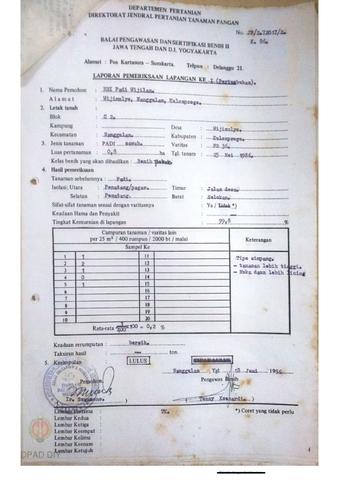 DEPARTEMEN PERTANIAN
DIREKTORAT JENDRAL PERTANIAN TANAMAN PANGAN
No.
BALAI PENGAWASAN DAN SERTIFIKASI BENIH II
JAWA TENGAH DAN D.I. YOGYAKARTA
Alamat : Pos Kartasura - Surakarta. Telpon : Delanggu 21.
LAPORAN PEMERIKSAAN LAPANGAN KE I (Pertumbuhan).
1. Nama Pemohon : KBI Padi Wijilan.
A l a m a t : Wijimulyo, Nanggulan, Kulonprogo.
2. Letak tanah
Blok : C 2.
Kampung Desa : Wijimulyo.
Kecamatan : Nanggulan. Kabupaten : Kulonprogo.
3. Jenis tanaman : PADI sawah. Varitas : PB 36.
Luas pertanaman : 0,8 ha Tgl. tanam : 25 Mei 1986.
Kelas benih yang akan dihasilkan : Benih
4. Hasil pemeriksaan
Tanaman sebelumnya : Padi.
Isolasi: Utara : Pematang/pagar. Timur : Jalan desa.
Selatan : Pematang. Barat : Selokan.
Sifat-sifat tanaman sesuai dengan varitasnya : Ya / *)
Keadaan Hama dan Penyakit :
Tingkat Kemurnian di lapangan : 99,8 %
Campuran tanaman / varitas lain
per 25 m² / 400 rumpun / 2000 bt / malai
Keterangan
Sampel Ke
1 1 11
2 2 12
3 1 13
4 0 14
5 1 15
6 16
7 17
8 18
9 19
10 20
Tipe simpang.
- tanaman lebih tinggi.
- Muka daun lebih
Rata-rata x100 = 0,2 %
Keadaan rerumputan : bersih.
Taksiran hasil : ton
5. Kesimpulan : LULUS
Nanggulan Tgl. 18 Juni 1986
Pemohon, Pengawas Benih
Lembar Pertama *) Coret yang tidak perlu
Lembar Kedua
Lembar Ketiga :
Lembar Keempat :
Lembar Kelima :
Lembar Keenam :
Lembar Ketujuh :
DPAD DIY